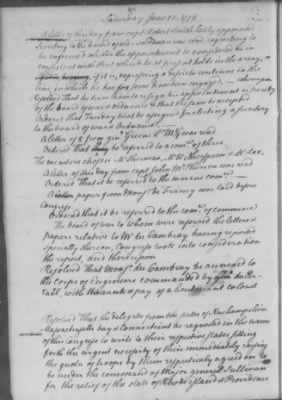 Saturday June 13. 1778
A letter of this day from capt Robert Smith lately appointed
Secretary to the board of war & ordnance was read, requesting to
be informed whether this appointment is considered as in
consistent with that which he at present holds in the army,
if it is, expressing a wish to continue in the
line in which he has for some time been engaged, whereupon
Resolved That he have leave to resign his appointment as secretary
of the board of war & ordnance & that the same be accepted
Ordered That tuesday next be assigned for electing a secretary
to the board of war & Ordnance
A letter of from genl Greene was read
Ordered That be referred to a com^ee of three
The members chosen Mr Sherman, Mr W Thompson & Mr Lee.
A letter of this day from capt John McPherson was read
Ordered That it be referred to the marine com^ee
A paper from Mons^r was laid before
Congress
Ordered that it be referred to the com^ee of commerce
The board of war to whom were referred the letters &
papers relative to Mr de Cambray having reported
specially thereon, Congress took into consideration
the report, and thereupon
Resolved That Mons^r de Cambray be annexed to
the corps of Engineers commanded by du Por-
tail, with the rank & pay of a lieutenant colonel
Resolved That the delegates from the states of Newhampshire
Massachusetts bay & Connecticut be requested in the name
of this Congress to write to their respective states setting
forth the urgent necessity of their immediately raising
the quota of troops by them respectively agreed on to
be under the command of Major general Sullivan
for the relief of the state of Rhode island & Providence